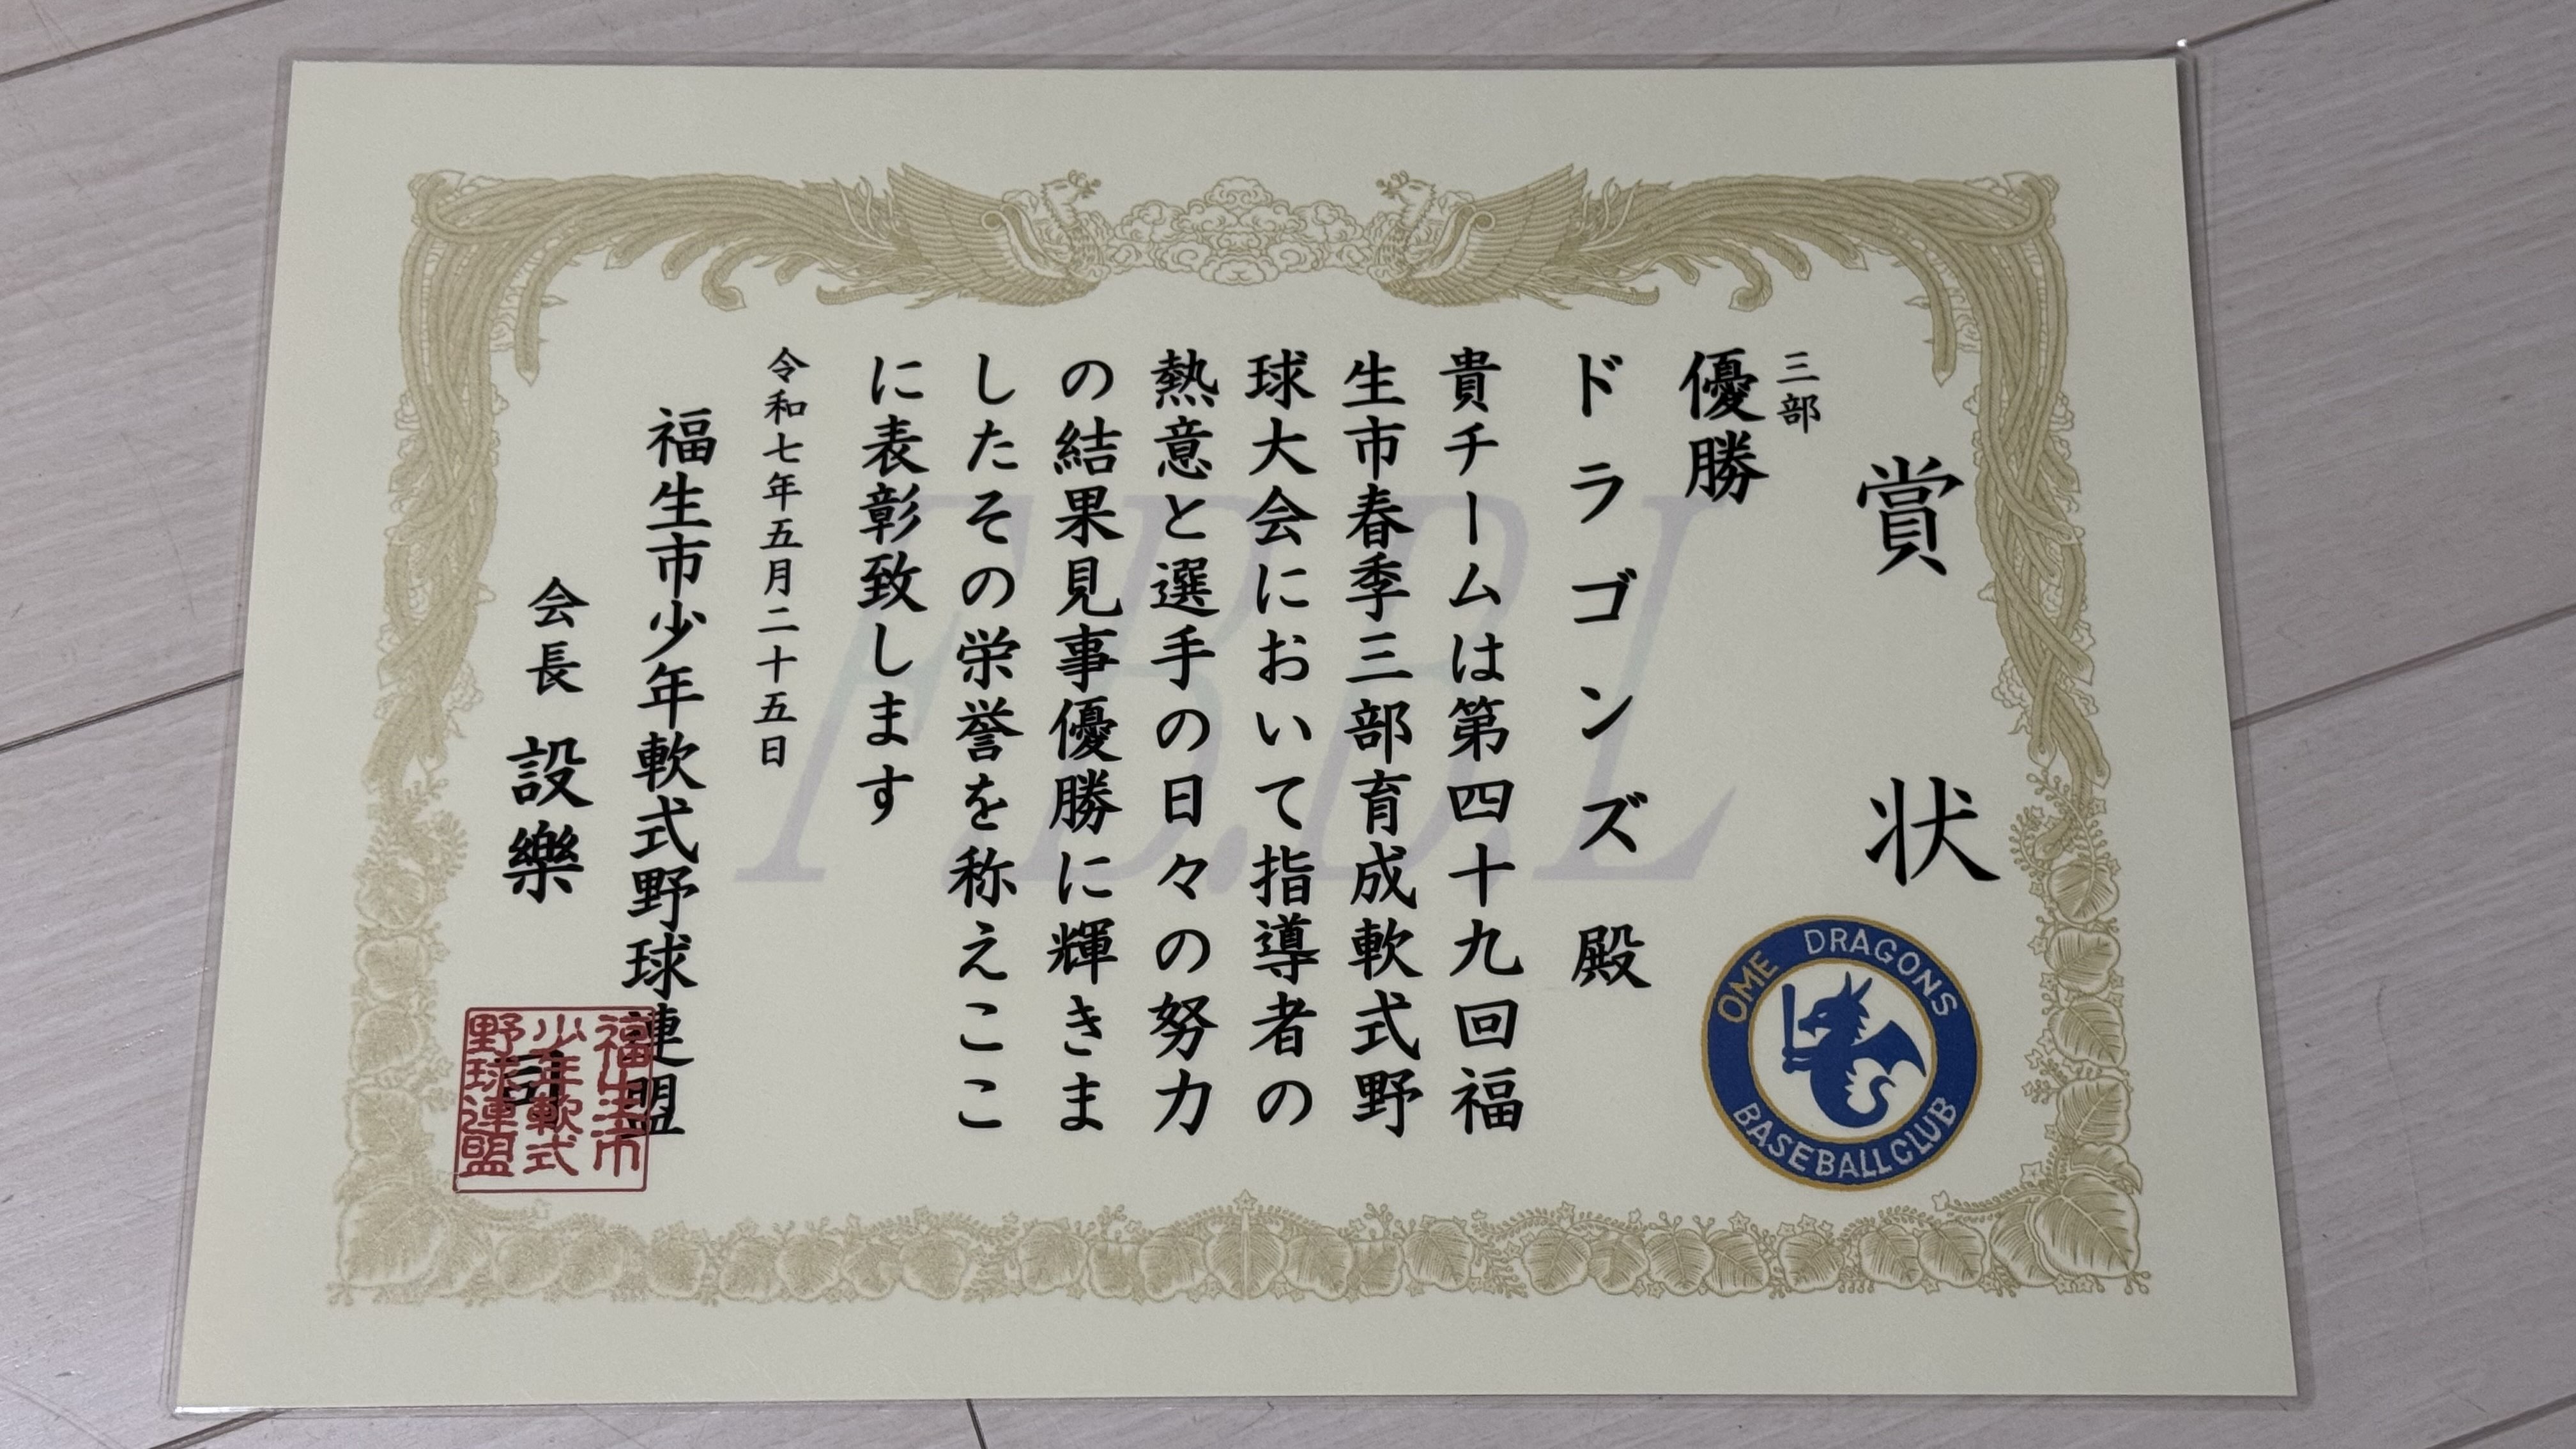 賞状
三部
優勝
ドラゴンズ 殿
貴チームは第四十九回福
生市春季三部育成軟式野
球大会において指導者の
熱意と選手の日々の努力
の結果見事優勝に輝きま
したその栄誉を称えここ
に表彰致します
令和七年五月二十五日
福生市少年軟式野球連盟
会長 設樂 司
福生市
少年軟式
野球連盟
OME DRAGONS
BASEBALL CLUB
F.B.B.L